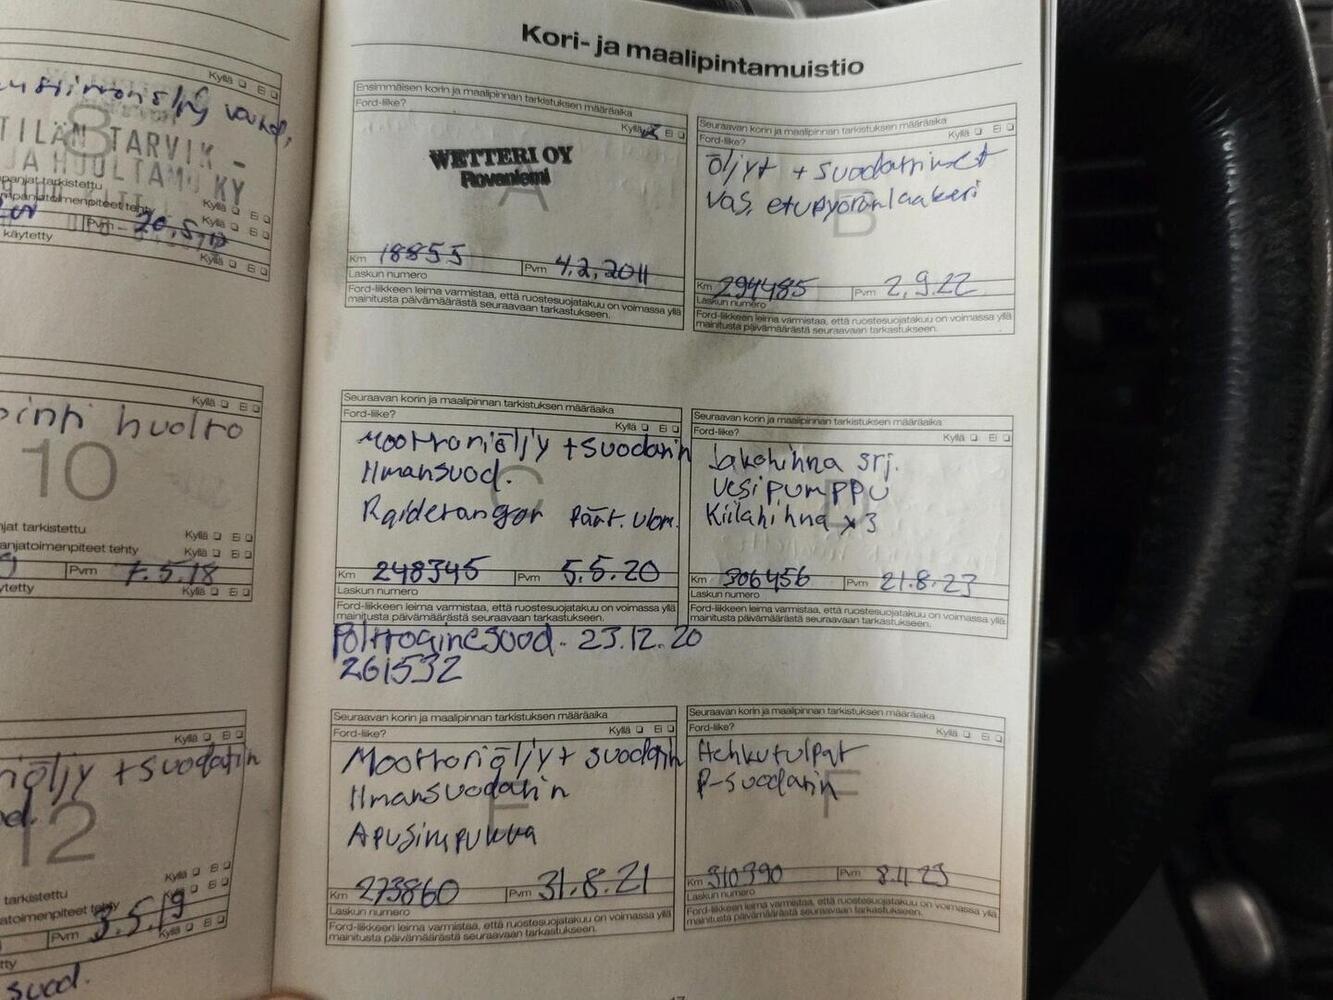 Kyllä El
usiinoriöljy vaihd,
8
TILÄN TARVIK-
JA HUOLTAMO KY
panjat tarkistettu
Kyllä El
mpanjatoimenpiteet tehty
Kyllä El
Pvm 20.5.17
käytetty
Kyllä El
Kyllä El
pinti huolto
10
jat tarkistettu
Kyllä El
anjatoimenpiteet tehty
Kyllä El
Pvm 7.5.18
ytetty
Kyllä El
Kyllä El
riöljy + suodatin
12
tarkistettu
Kyllä El
atoimenpiteet tehty
Kyllä El
Pvm 3.5.19
Kyllä El
suod.
Kori- ja maalipintamuistio
Ensimmäisen korin ja maalipinnan tarkistuksen määräaika
Ford-liike?
Kyllä El
WETTERI OY
Rovaniemi
A
Km 18855 Pvm 4.2.2011
Laskun numero
Ford-liikkeen leima varmistaa, että ruostesuojatakuu on voimassa yllä
mainitusta päivämäärästä seuraavaan tarkastukseen.
Seuraavan korin ja maalipinnan tarkistuksen määräaika
Ford-liike?
Kyllä El
Öljyt + suodattimet
vas. etupyöränlaakeri
B
Km 294485 Pvm 2.9.22
Laskun numero
Ford-liikkeen leima varmistaa, että ruostesuojatakuu on voimassa yllä
mainitusta päivämäärästä seuraavaan tarkastukseen.
Seuraavan korin ja maalipinnan tarkistuksen määräaika
Ford-liike?
Kyllä El
Moottoriöljy + suodatin
Ilmansuod.
C
Raidetangon päät. ulom.
Km 248345 Pvm 5.5.20
Laskun numero
Ford-liikkeen leima varmistaa, että ruostesuojatakuu on voimassa yllä
mainitusta päivämäärästä seuraavaan tarkastukseen.
Polttoainesuod. 23.12.20
261532
Seuraavan korin ja maalipinnan tarkistuksen määräaika
Ford-liike?
Kyllä El
Jakohihna srj.
Vesipumppu
D
Kiilahihna x3
Km 306456 Pvm 21.8.23
Laskun numero
Ford-liikkeen leima varmistaa, että ruostesuojatakuu on voimassa yllä
mainitusta päivämäärästä seuraavaan tarkastukseen.
Seuraavan korin ja maalipinnan tarkistuksen määräaika
Ford-liike?
Kyllä El
Moottoriöljy + suodatin
Ilmansuodatin
E
Apusimpukka
Km 273860 Pvm 31.8.21
Laskun numero
Ford-liikkeen leima varmistaa, että ruostesuojatakuu on voimassa yllä
mainitusta päivämäärästä seuraavaan tarkastukseen.
Seuraavan korin ja maalipinnan tarkistuksen määräaika
Ford-liike?
Kyllä El
Hehkutulpat
P-suodatin
F
Km 310390 Pvm 8.11.23
Laskun numero
Ford-liikkeen leima varmistaa, että ruostesuojatakuu on voimassa yllä
mainitusta päivämäärästä seuraavaan tarkastukseen.